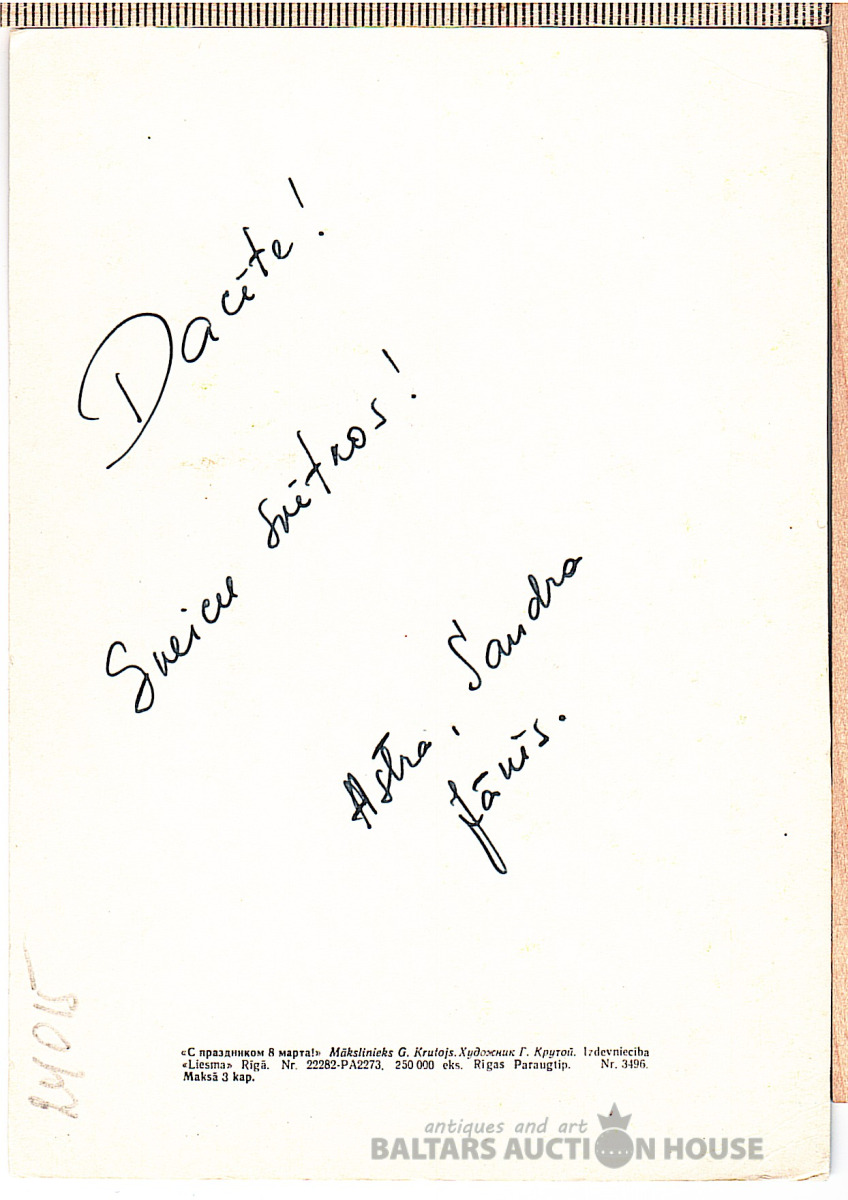 Dacīte!
Sveicu svētkos!
Astra, Sandra
Jānis.
24015
«С праздником 8 марта!» Mākslinieks G. Krutojs. Художник Г. Крутой. Izdevniecība
«Liesma» Rīgā. Nr. 22282-PA2273. 250 000 eks. Rīgas Paraugtip. Nr. 3496.
Maksā 3 kap.
antiques and art
BALTARS AUCTION HOUSE